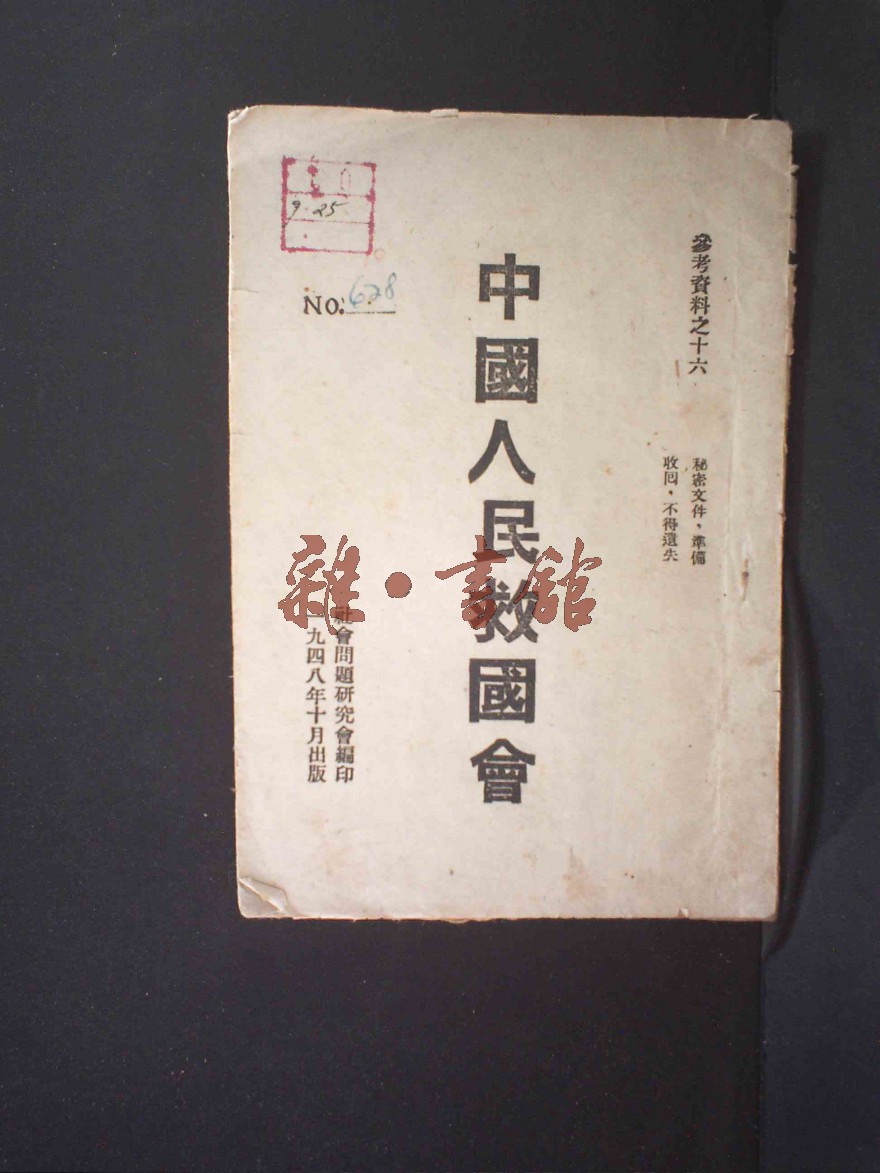 參考資料之十六
秘密文件，準備
收回，不得遺失
中國人民救國會
社會問題研究會編印
一九四八年十月出版
NO. 628
9.25
雜·書館